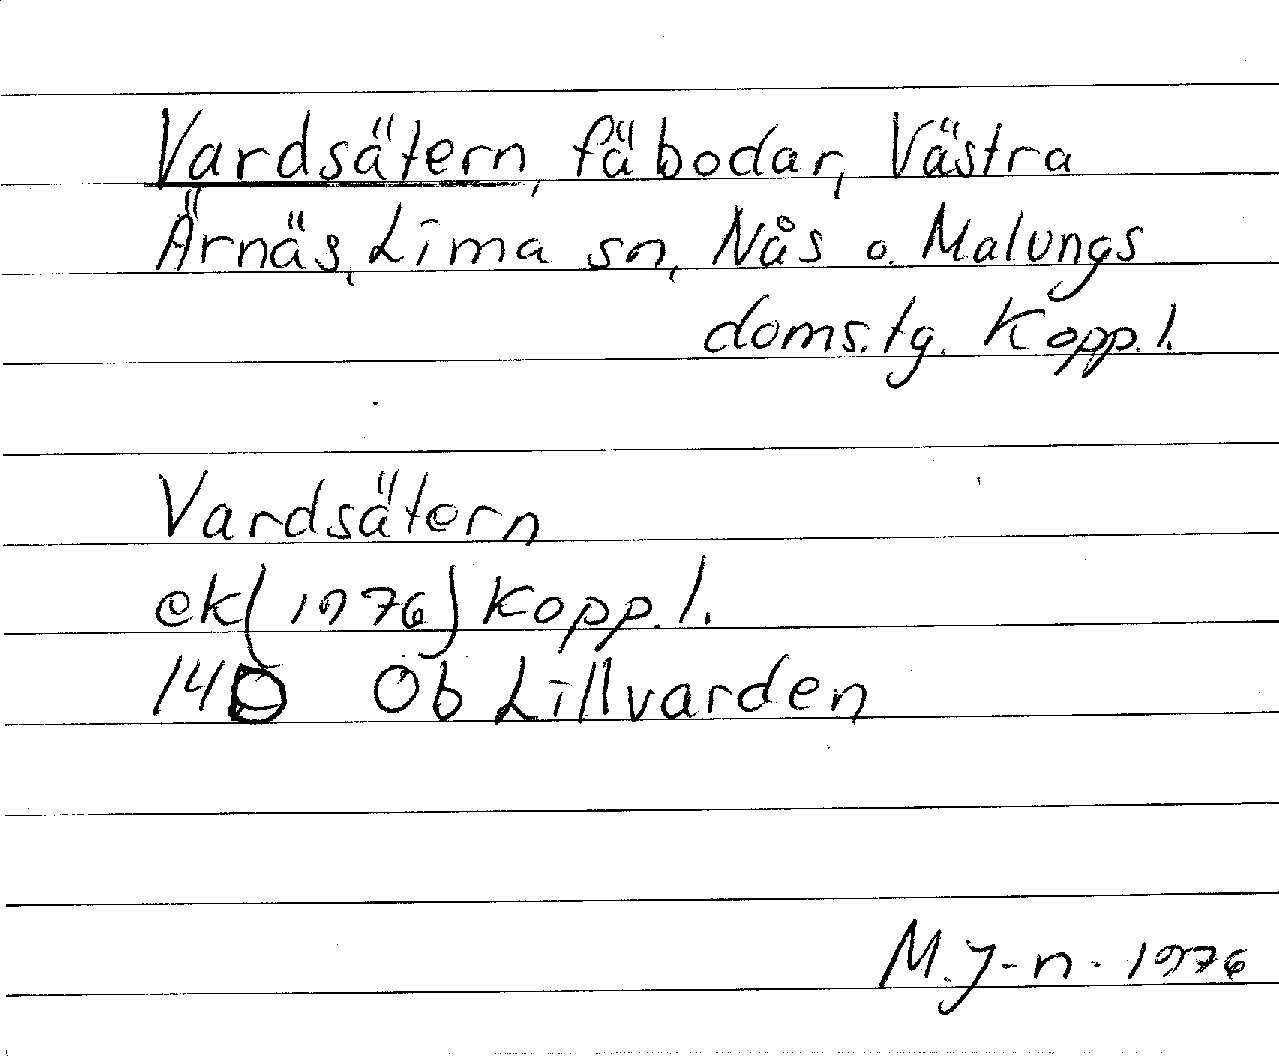 Vardsätern, fäbodar, Västra
Ärnäs, Lima sn, Nås o. Malungs
doms.tg. Kopp.l.
Vardsätern
ek(1976) Kopp.l.
14D Ob Lillvarden
M.J-n- 1976